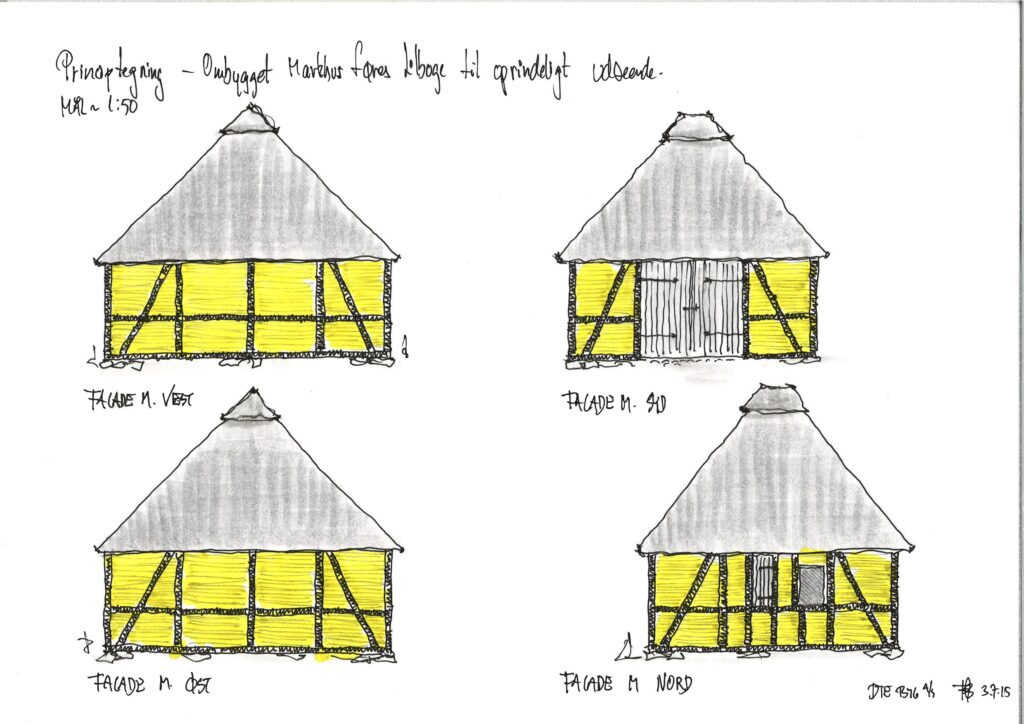 Principtegning – Ombygget Markhus føres tilbage til oprindeligt udseende.
MÅL ~ 1:50
FACADE M. VEST
FACADE M. SYD
FACADE M. ØST
FACADE M NORD
DTE BYG A/S 3.7.15